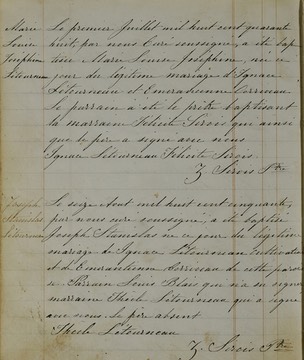 Marie
Louise
Josephine
Létourneau
Le premier Juillet mil huit cent quarante
huit, par nous Curé soussigné, a été bap
tisée Marie Louise Josephine, née ce
jour du légitime mariage d'Ignace
Létourneau et Emerantienne Corriveau
le parrain a été le prêtre baptisant
la marraine Félicité Sirois qui ainsi
que le père a signé avec nous
Ignace Létourneau Félicité Sirois
Z Sirois Ptre
Joseph
Stanislas
Létourneau
Le seize Août mil huit cent cinquante,
par nous curé soussigné, a été baptisé
Joseph Stanislas né ce jour du légitime
mariage de Ignace Létourneau cultivateur
et d'Emérantienne Corriveau de cette parois
se. Parrain Louis Blais qui n'a su signer
marraine Thècle Létourneau qui a signé
avec nous. le père absent
Thècle Létourneau
Z. Sirois Ptre